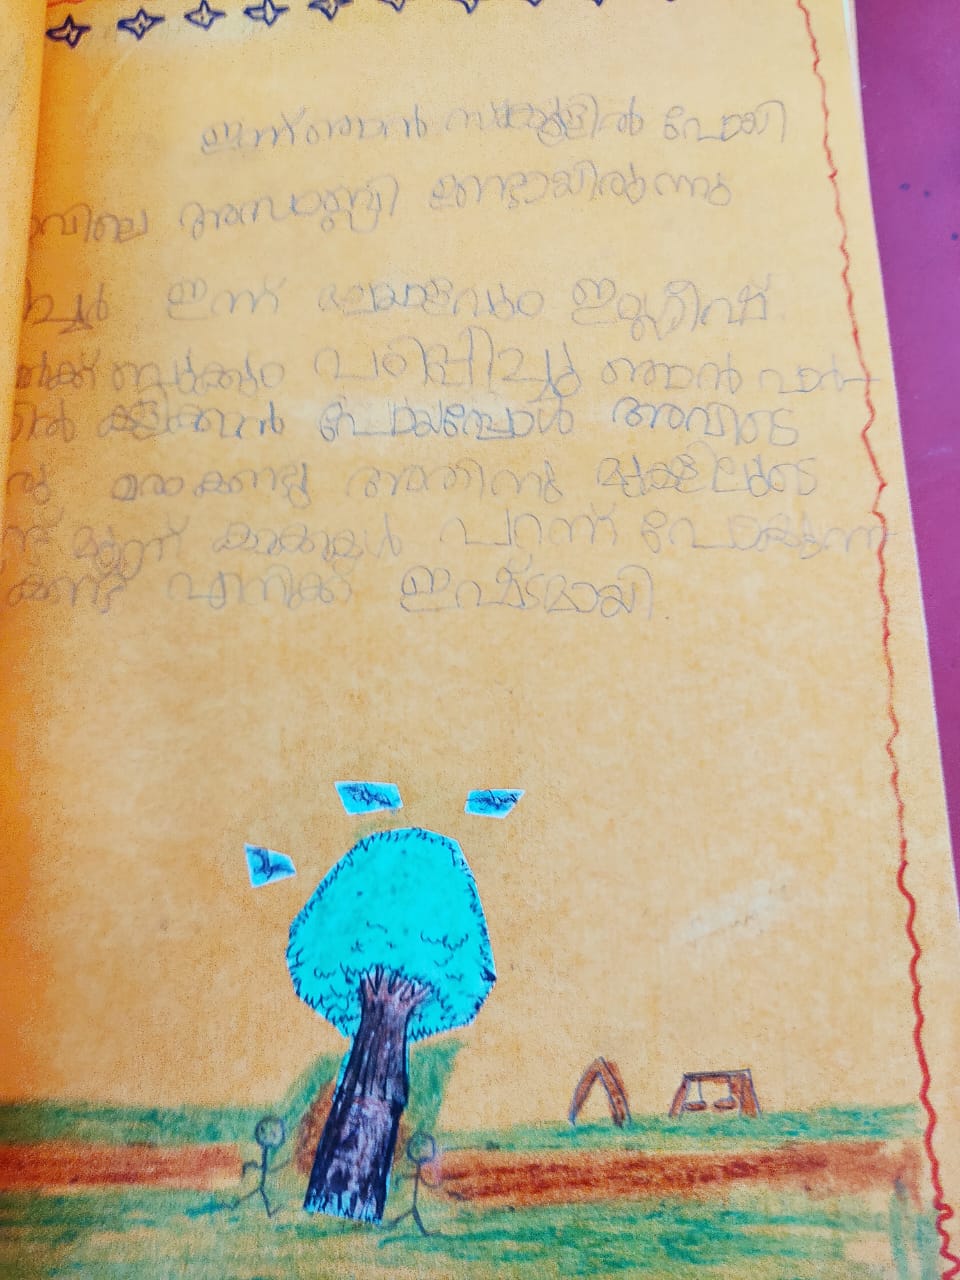 ഇന്ന് ഞാൻ സ്കൂളിൽ പോയി
വിലെ അസംബ്ലി ഉണ്ടായിരുന്നു
ച്ചർ ഇന്ന് മലയാളവും ഇംഗ്ലീഷ്
പഠിപ്പിച്ചു ഞാൻ പാർ-
ൽ കളിക്കാൻ പോയപ്പോൾ അവിടെ
രു മരം കണ്ടു അതിനു മുകളിലൂടെ
മൂന്ന് കാക്കകൾ പറന്ന് പോകുന്ന
കണ്ട് എനിക്ക് ഇഷ്ടമായി